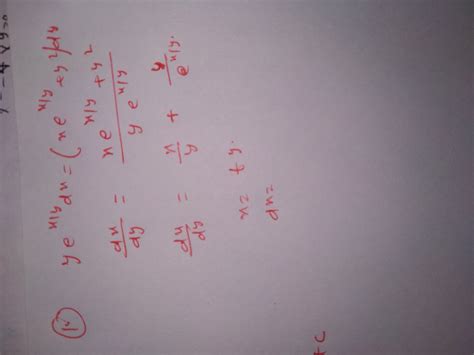 = -4 y y=0
(iv) y e^{x/y} dx = (x e^{x/y} + y^2) dy
dx/dy = (x e^{x/y} + y^2) / (y e^{x/y})
dx/dy = x/y + y/e^{x/y}.
x = ty.
dx =
+ C